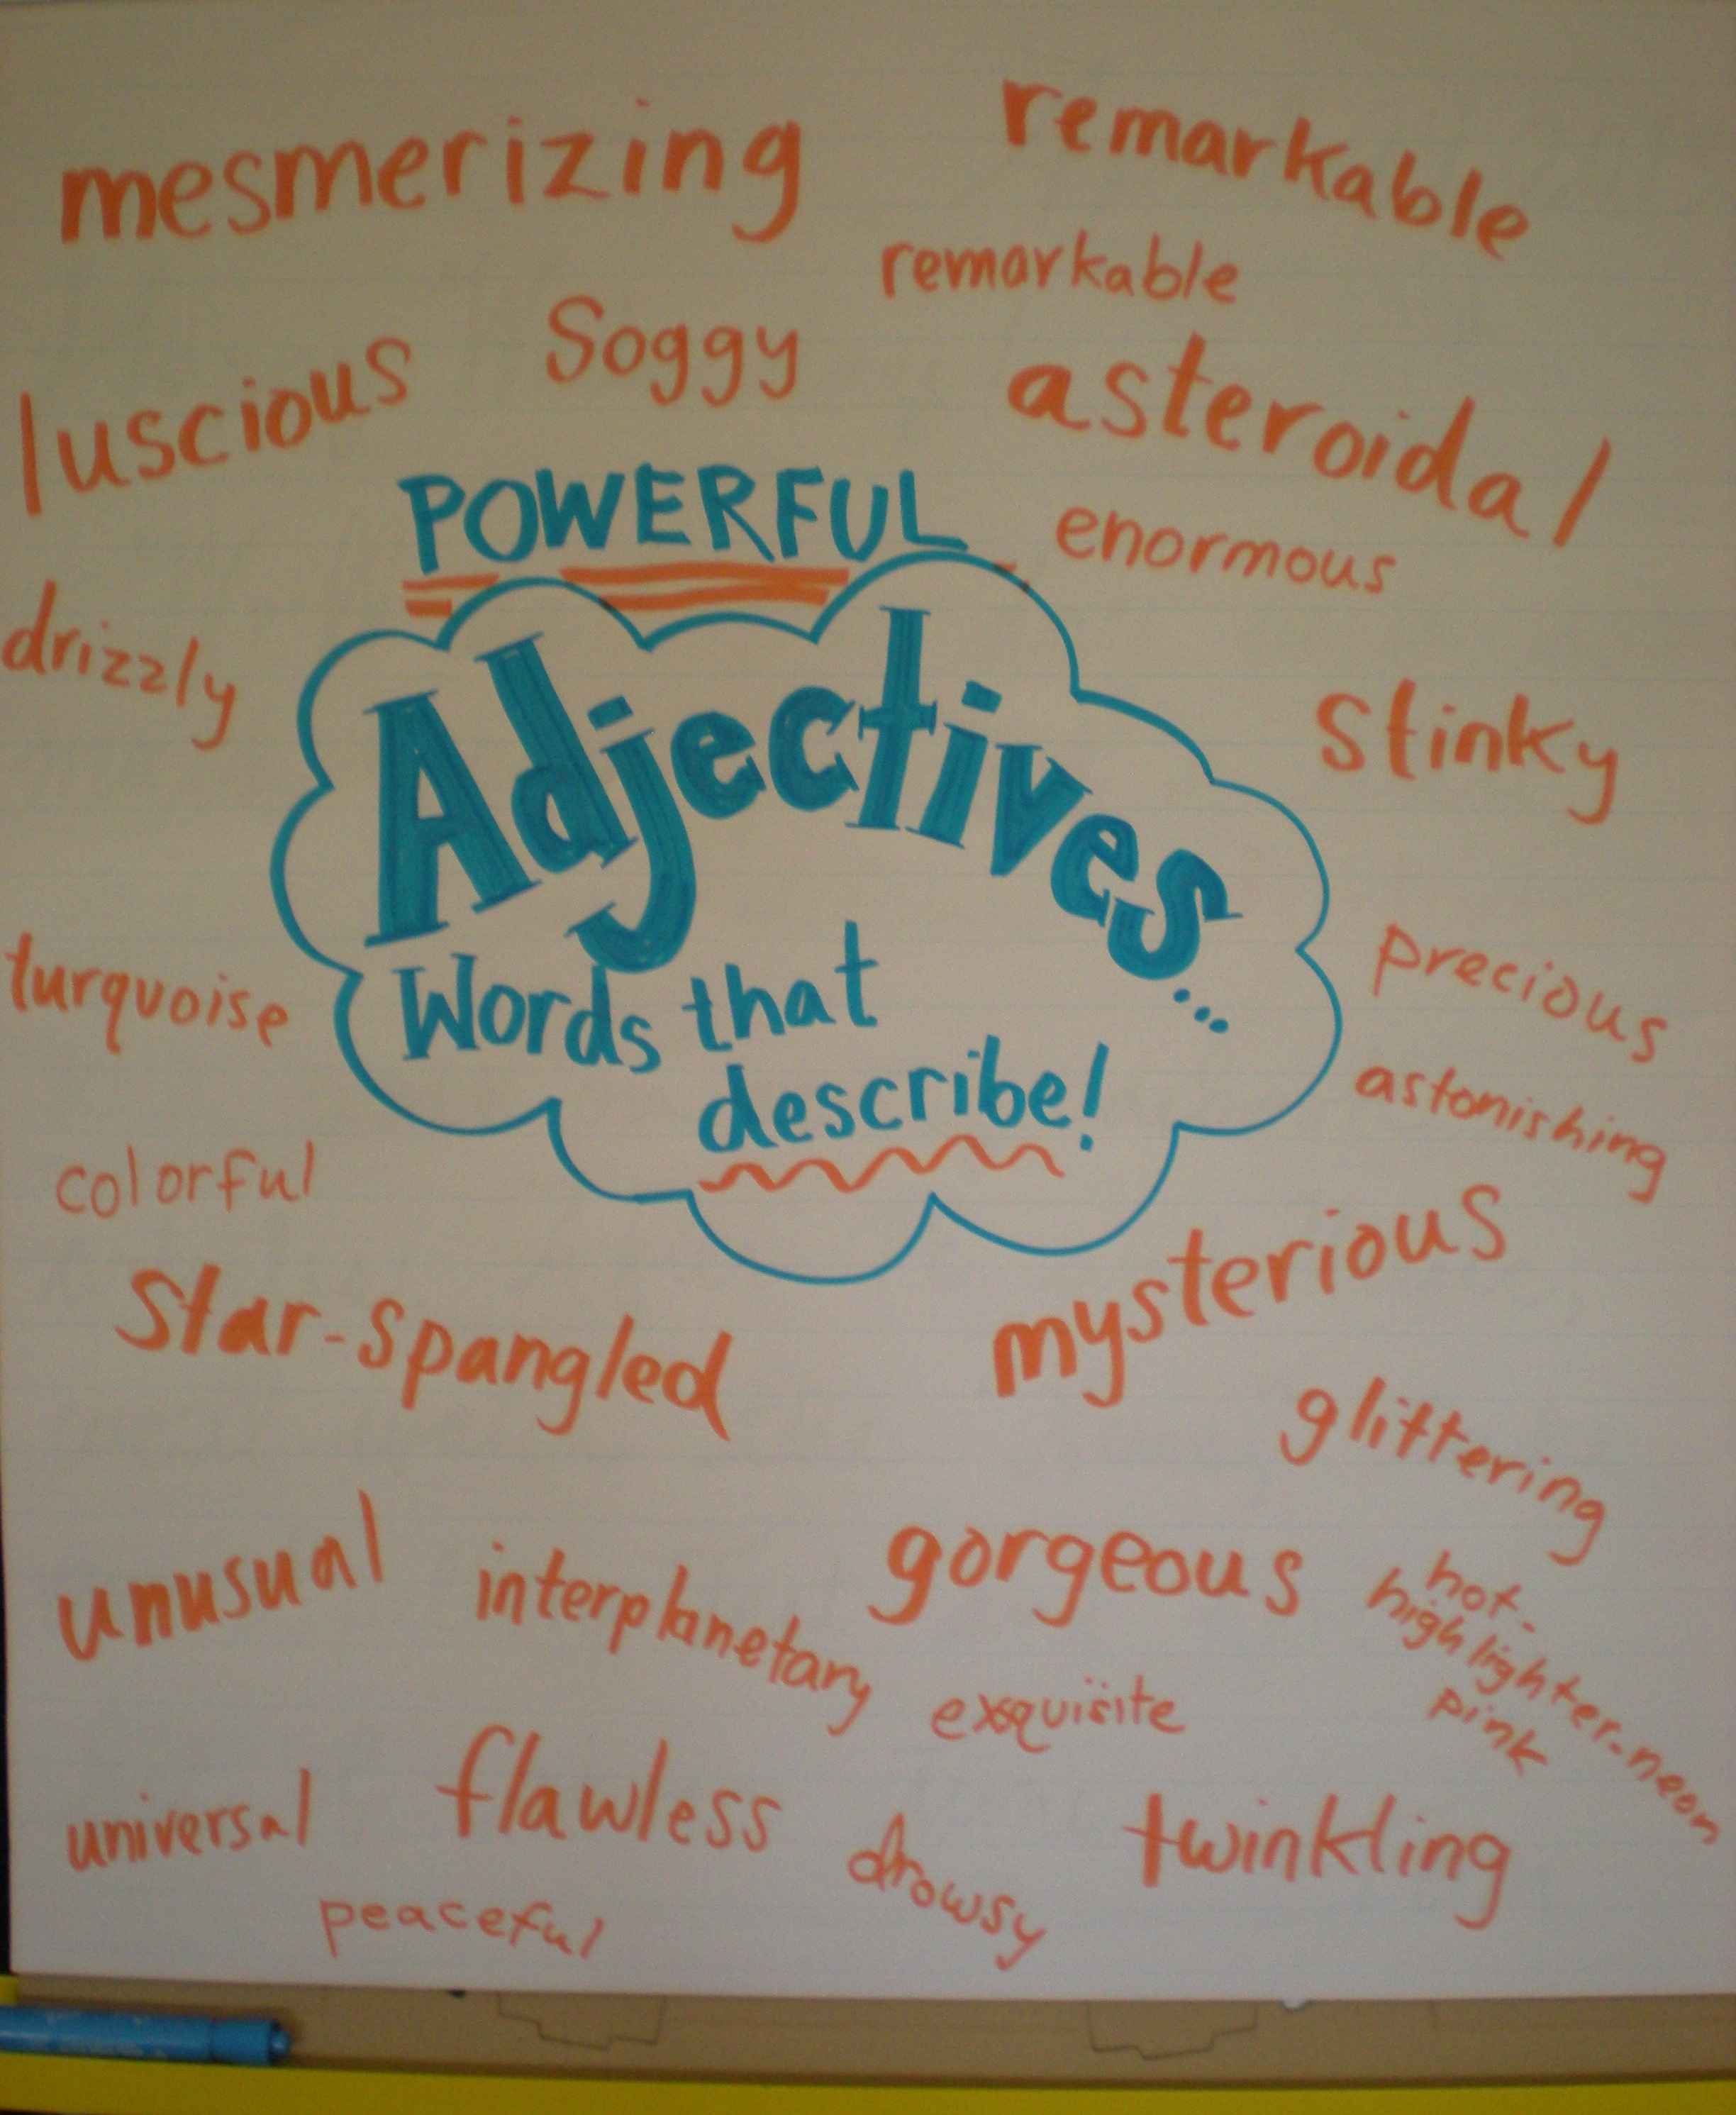 mesmerizing
remarkable
remarkable
Soggy
luscious
asteroidal
POWERFUL
enormous
drizzly
Adjectives...
stinky
Words that
describe!
turquoise
precious
astonishing
colorful
mysterious
Star-spangled
glittering
unusual
interplanetary
gorgeous
hot-
highlighter-neon
pink
exquisite
universal
flawless
drowsy
twinkling
peaceful